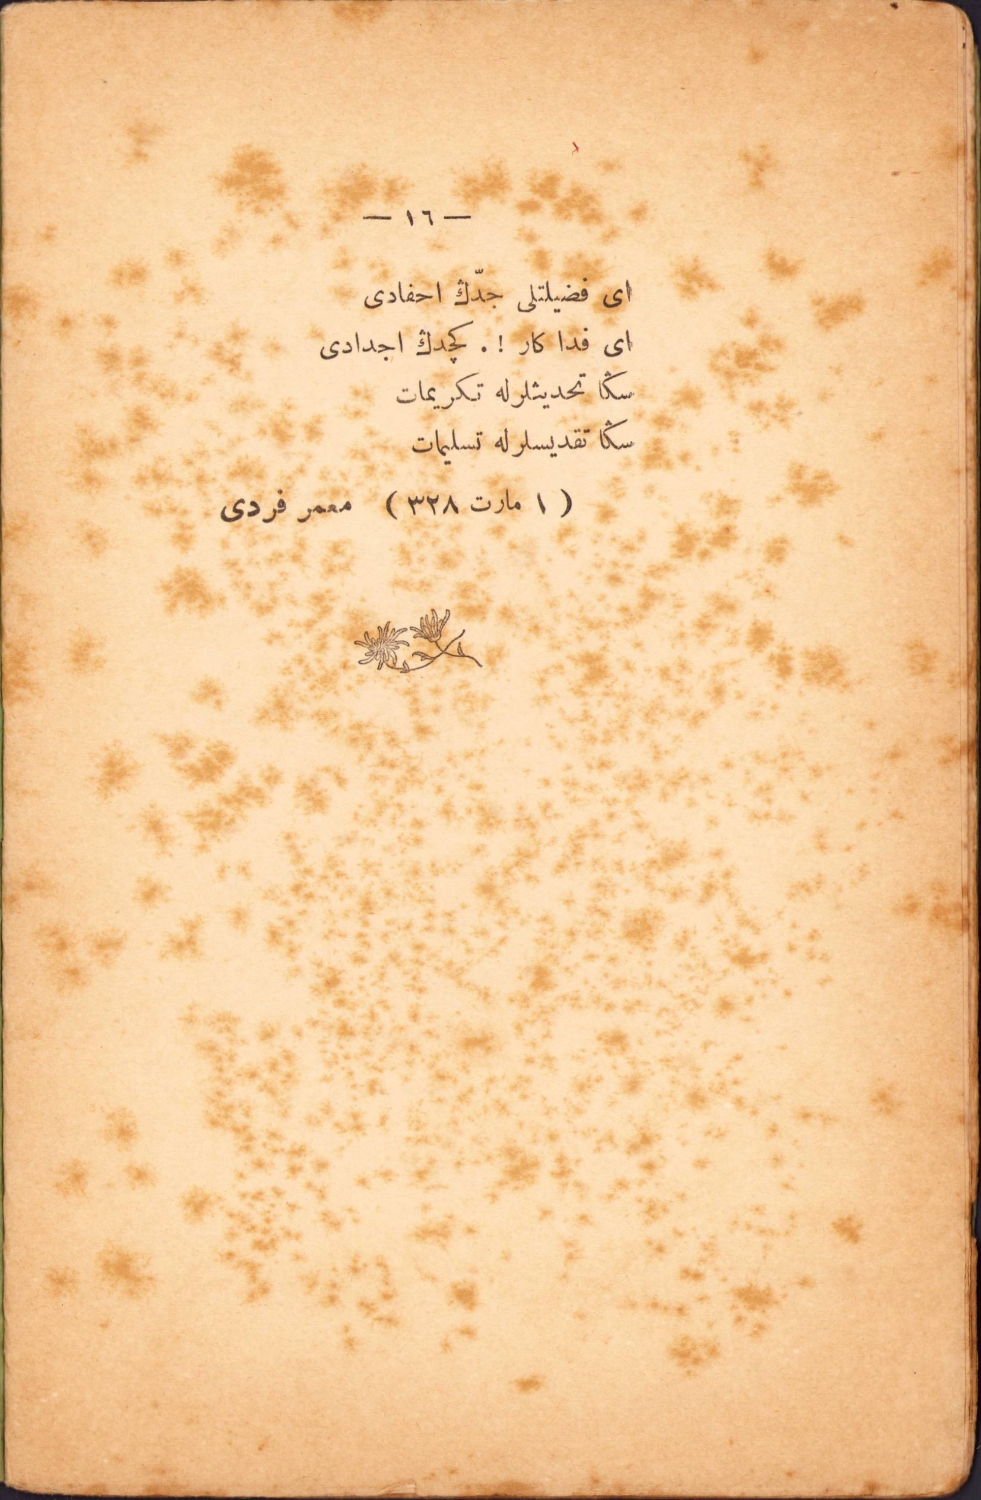 — ١٦ —
ای فضیلتلی جدّڭ احفادی
ای فدا کار !. کچدڭ اجدادی
سڭا تحدیثلرله تکریمات
سڭا تقدیسلرله تسلیمات
( ١ مارت ٣٢٨ ) معمر فردی